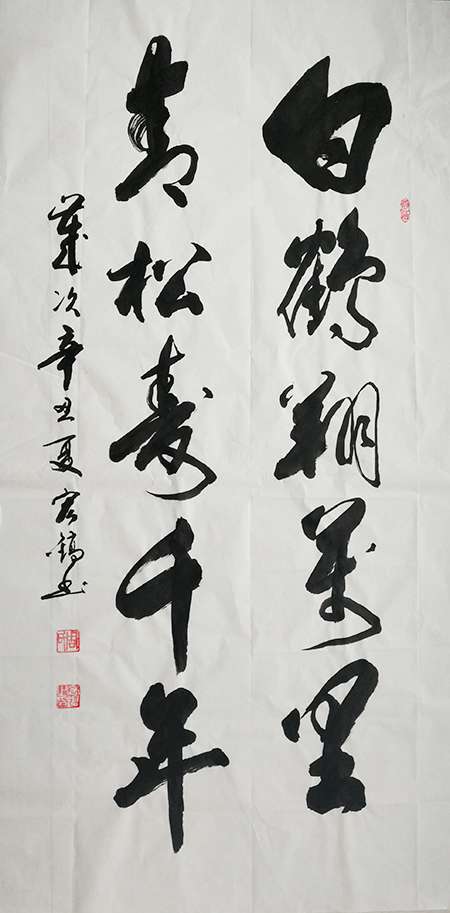 白鹤翔萬里
青松寿千年
歲次辛丑夏宏鎬书